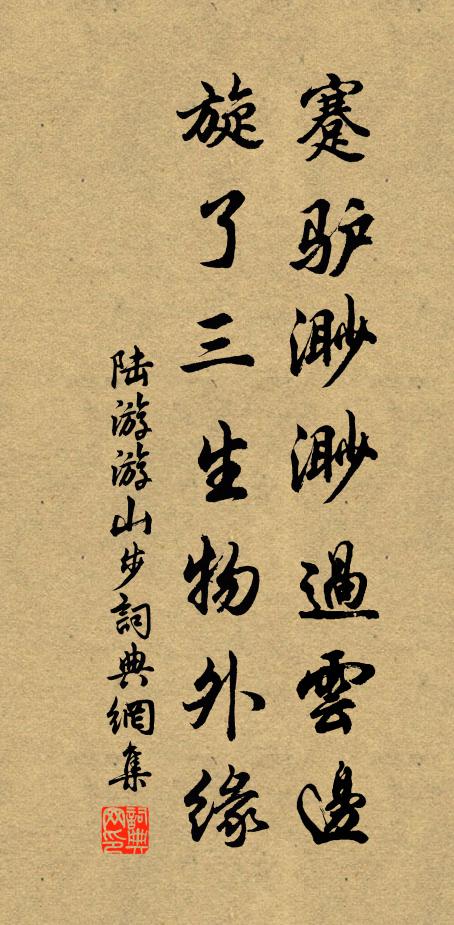 蹇驴渺渺過雲邊
旋了三生物外緣
陆游游山步詞典網集
詞典网印